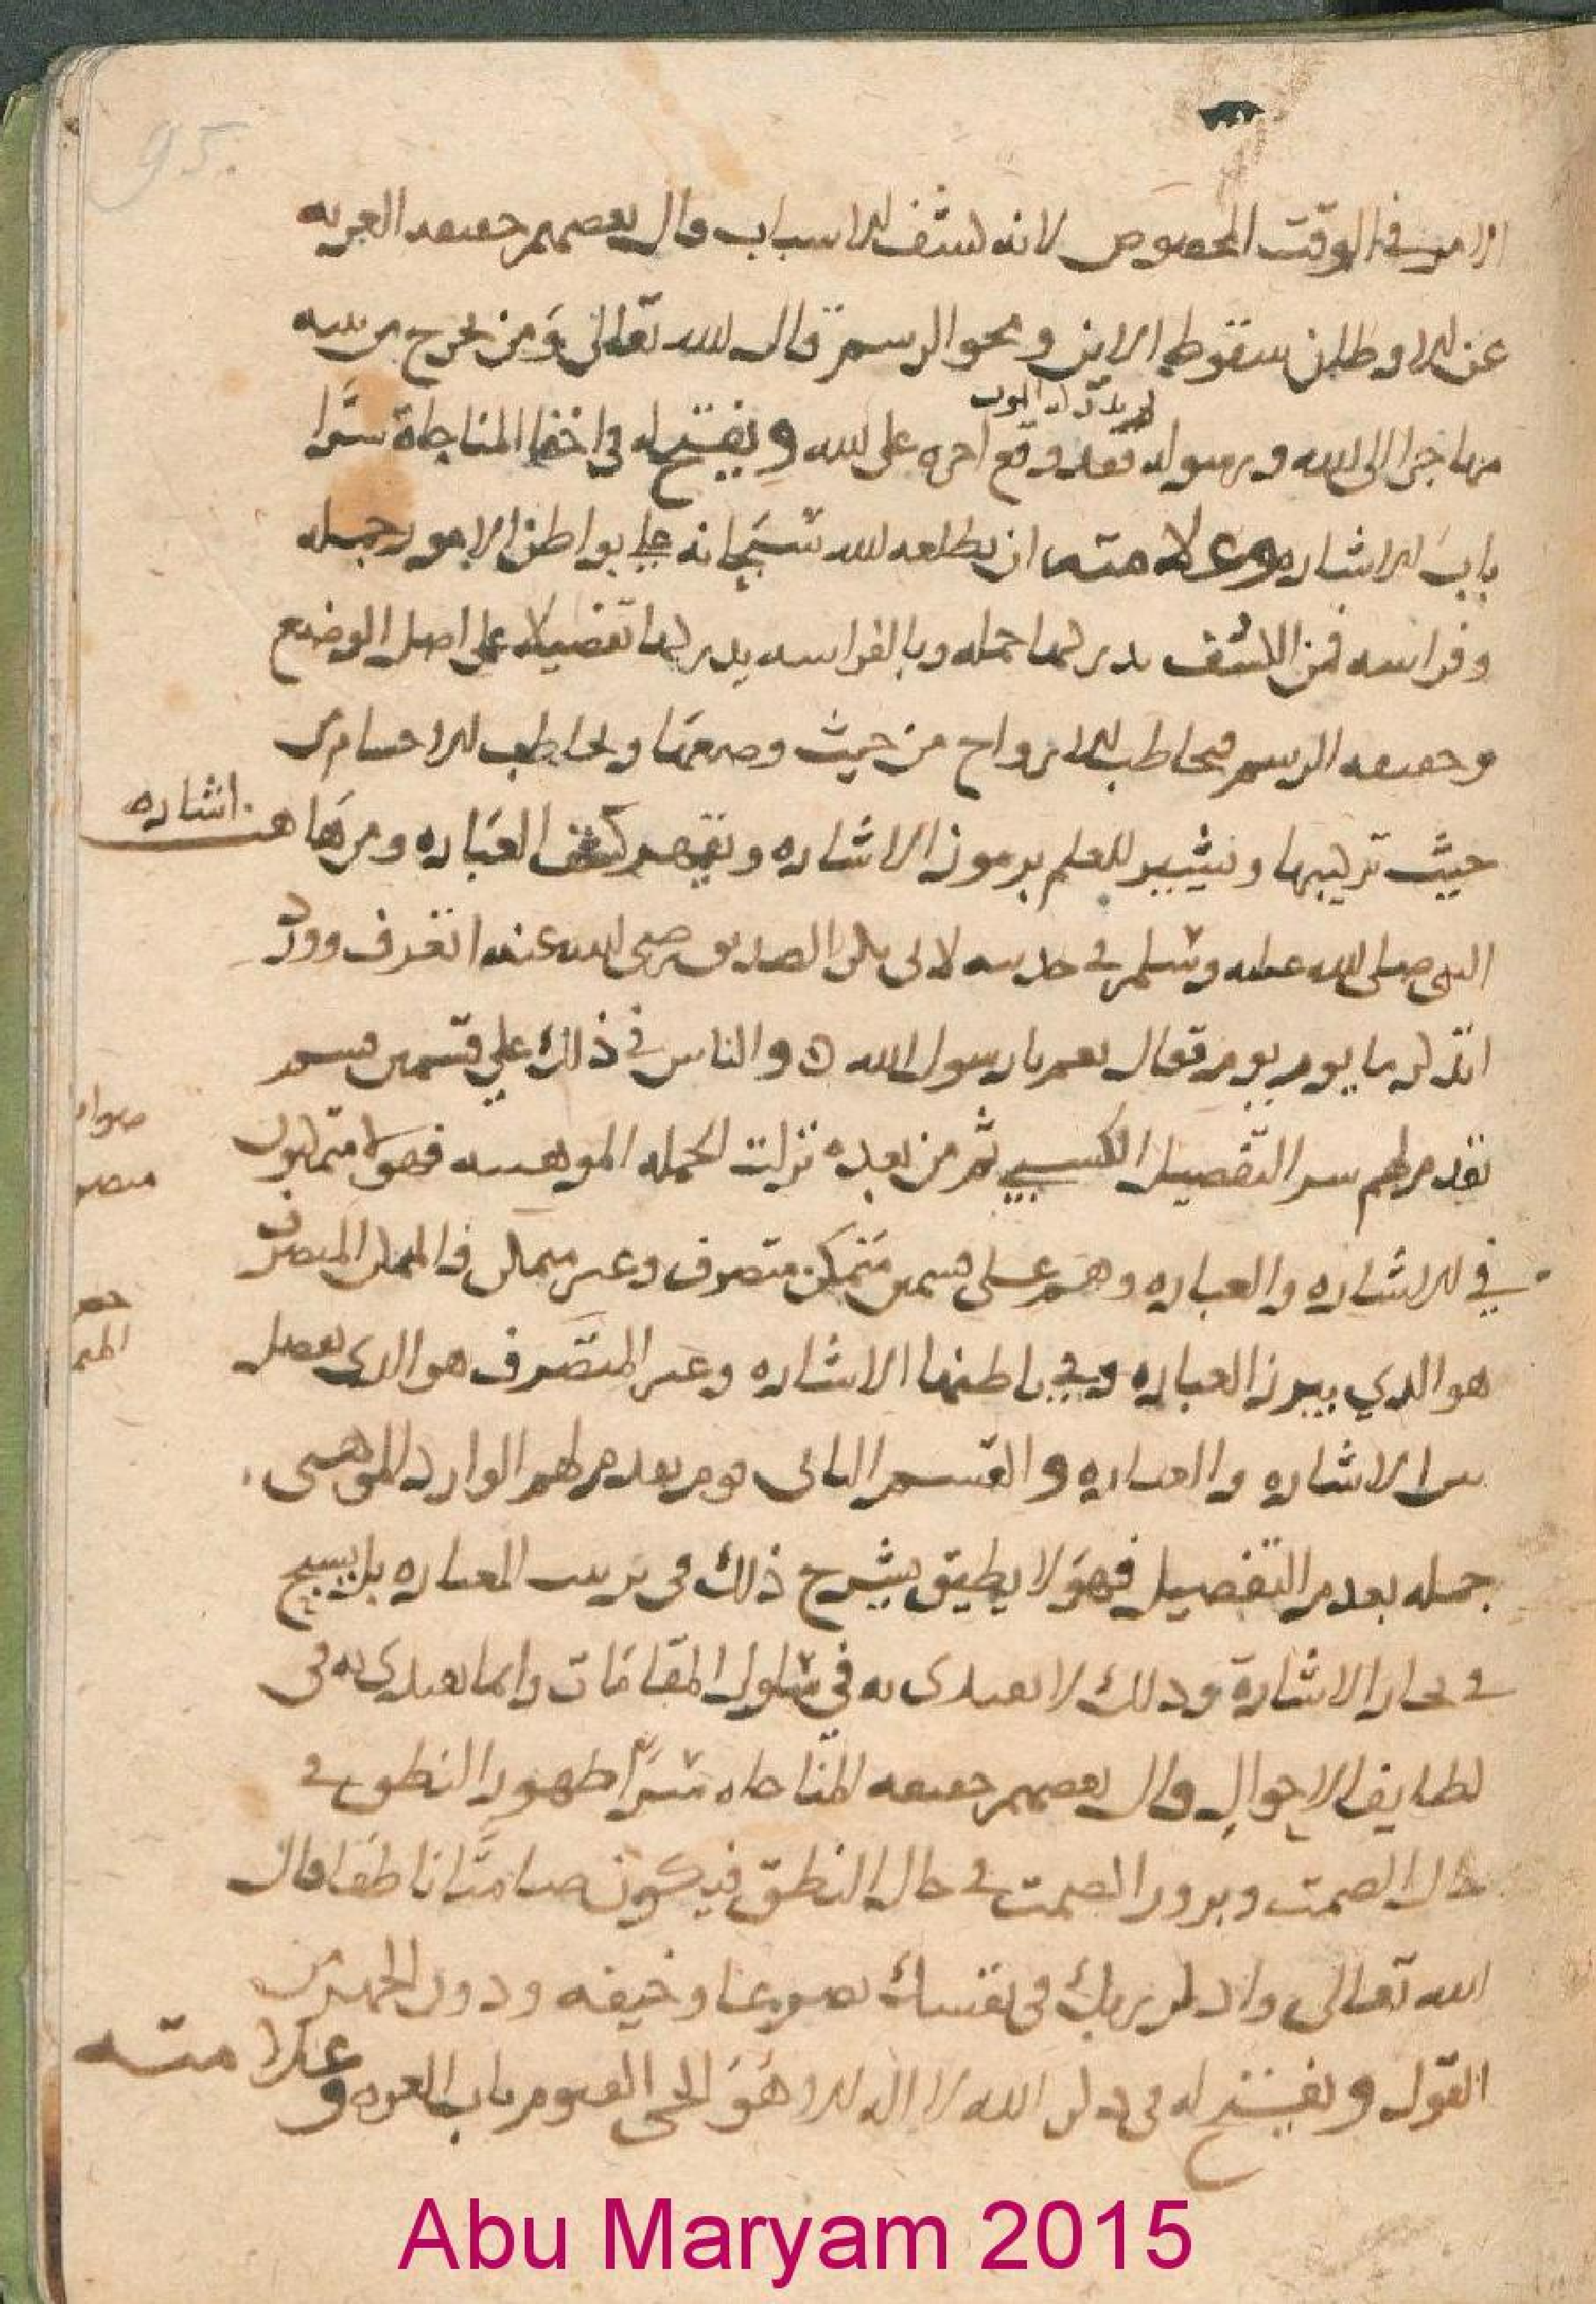 95.
الامر في الوقت المخصوص لانه كشف الاسباب وقال بعضهم حقيقه الغربه
عن الاوطان سقوط الاين ومحو الرسم قال الله تعالى ومن يخرج من بيته
ثم يدركه الموت
مهاجرا الى الله ورسوله فقد وقع اجره على الله ويفتح له في اخفا المناجاة سرًا
باب الاشاره وعلامته ان يطلعه الله سبحانه على بواطن الامور جمله
وفراسه فمن الكشف يدركها جمله وبالفراسه يدركها تفصيلا على اصل الوضع
وحقيقه الرسم فيخاطب الارواح من حيث وصفها ويخاطب الاجسام من
حيث تركيبها ويشير للعلم برموز الاشاره ويقصر كشف العباره ومن هاهنا اشاره
النبي صلى الله عليه وسلم في حديثه لابي بكر الصديق رضي الله عنه اتعرف وورد
اتذكر يا يوم يوم فقال نعم يا رسول الله ه والناس في ذلك على قسمين قسم
تقدم لهم سر التفصيل الكسبي ثم من بعده نزلت الجمله الموهبيه فهولا متمكنون
في الاشاره والعباره وهم على قسمين متمكن متصرف وغير متمكن فالمتمكن المتصرف
هو الذي يبرز العباره وفي باطنها الاشاره وغير المتصرف هو الذي يفصل
بين الاشاره والعباره والقسم الثاني قوم تقدم لهم الوارد الموهبي
جمله بعدم التفصيل فهو لا يطيق يشرح ذلك في ترتيب العباره بل يسبح
في بحار الاشارة وذلك لا يقتدى به في سلوك المقامات وانما يقتدى به في
لطايف الاحوال وقال بعضهم حقيقه المناجاه سرًا ظهور النطق في
حال الصمت وبروز الصمت في حال النطق فيكون صامتا ناطقا قال
الله تعالى واذكر ربك في نفسك تضرعا وخيفه ودون الجهر من
القول ويفتح له في ذكر الله لا اله الا هو الحي القيوم باب العزه وعلامته
صوابه
متصر
Abu Maryam 2015